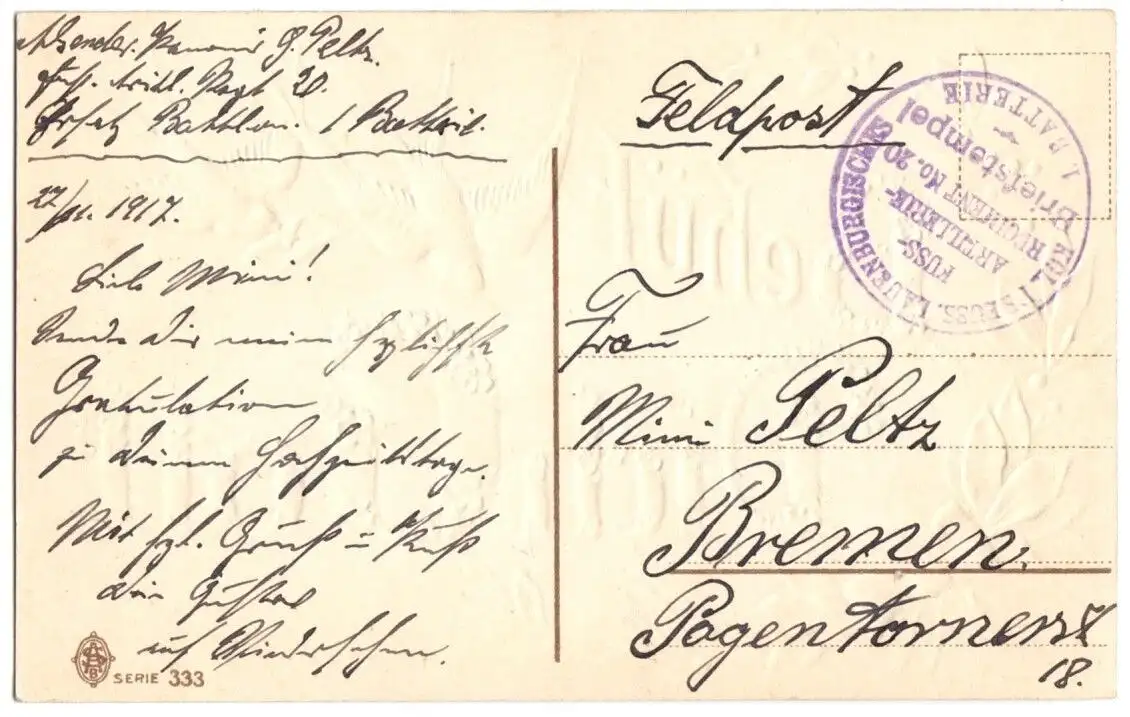 Absender. Kanonir G. Peltz.
Fuß. Artl. Regt 20.
Ersatz Battlon. 1 Batterie.
1917.
Liebe Mimi!
Sende Dir meine herzlichste
Gratulation
zu Deinem Hochzeitstage.
Mit hzl. Gruß u Kuß
Dein Gustav
auf Wiedersehen.
SERIE 333
Feldpost
KGL. PREUSS. LAUENBURGISCHES
FUSS-
ARTILLERIE-
REGIMENT No. 20
Briefstempel
1. BATTERIE
Frau
Mimi Peltz
Bremen.
Pagentornerst
18.